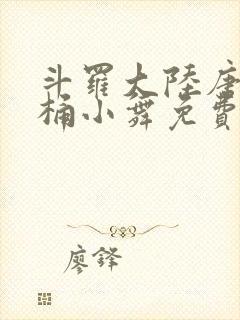 斗羅大陸唐
桶小舞免費
廖鋒